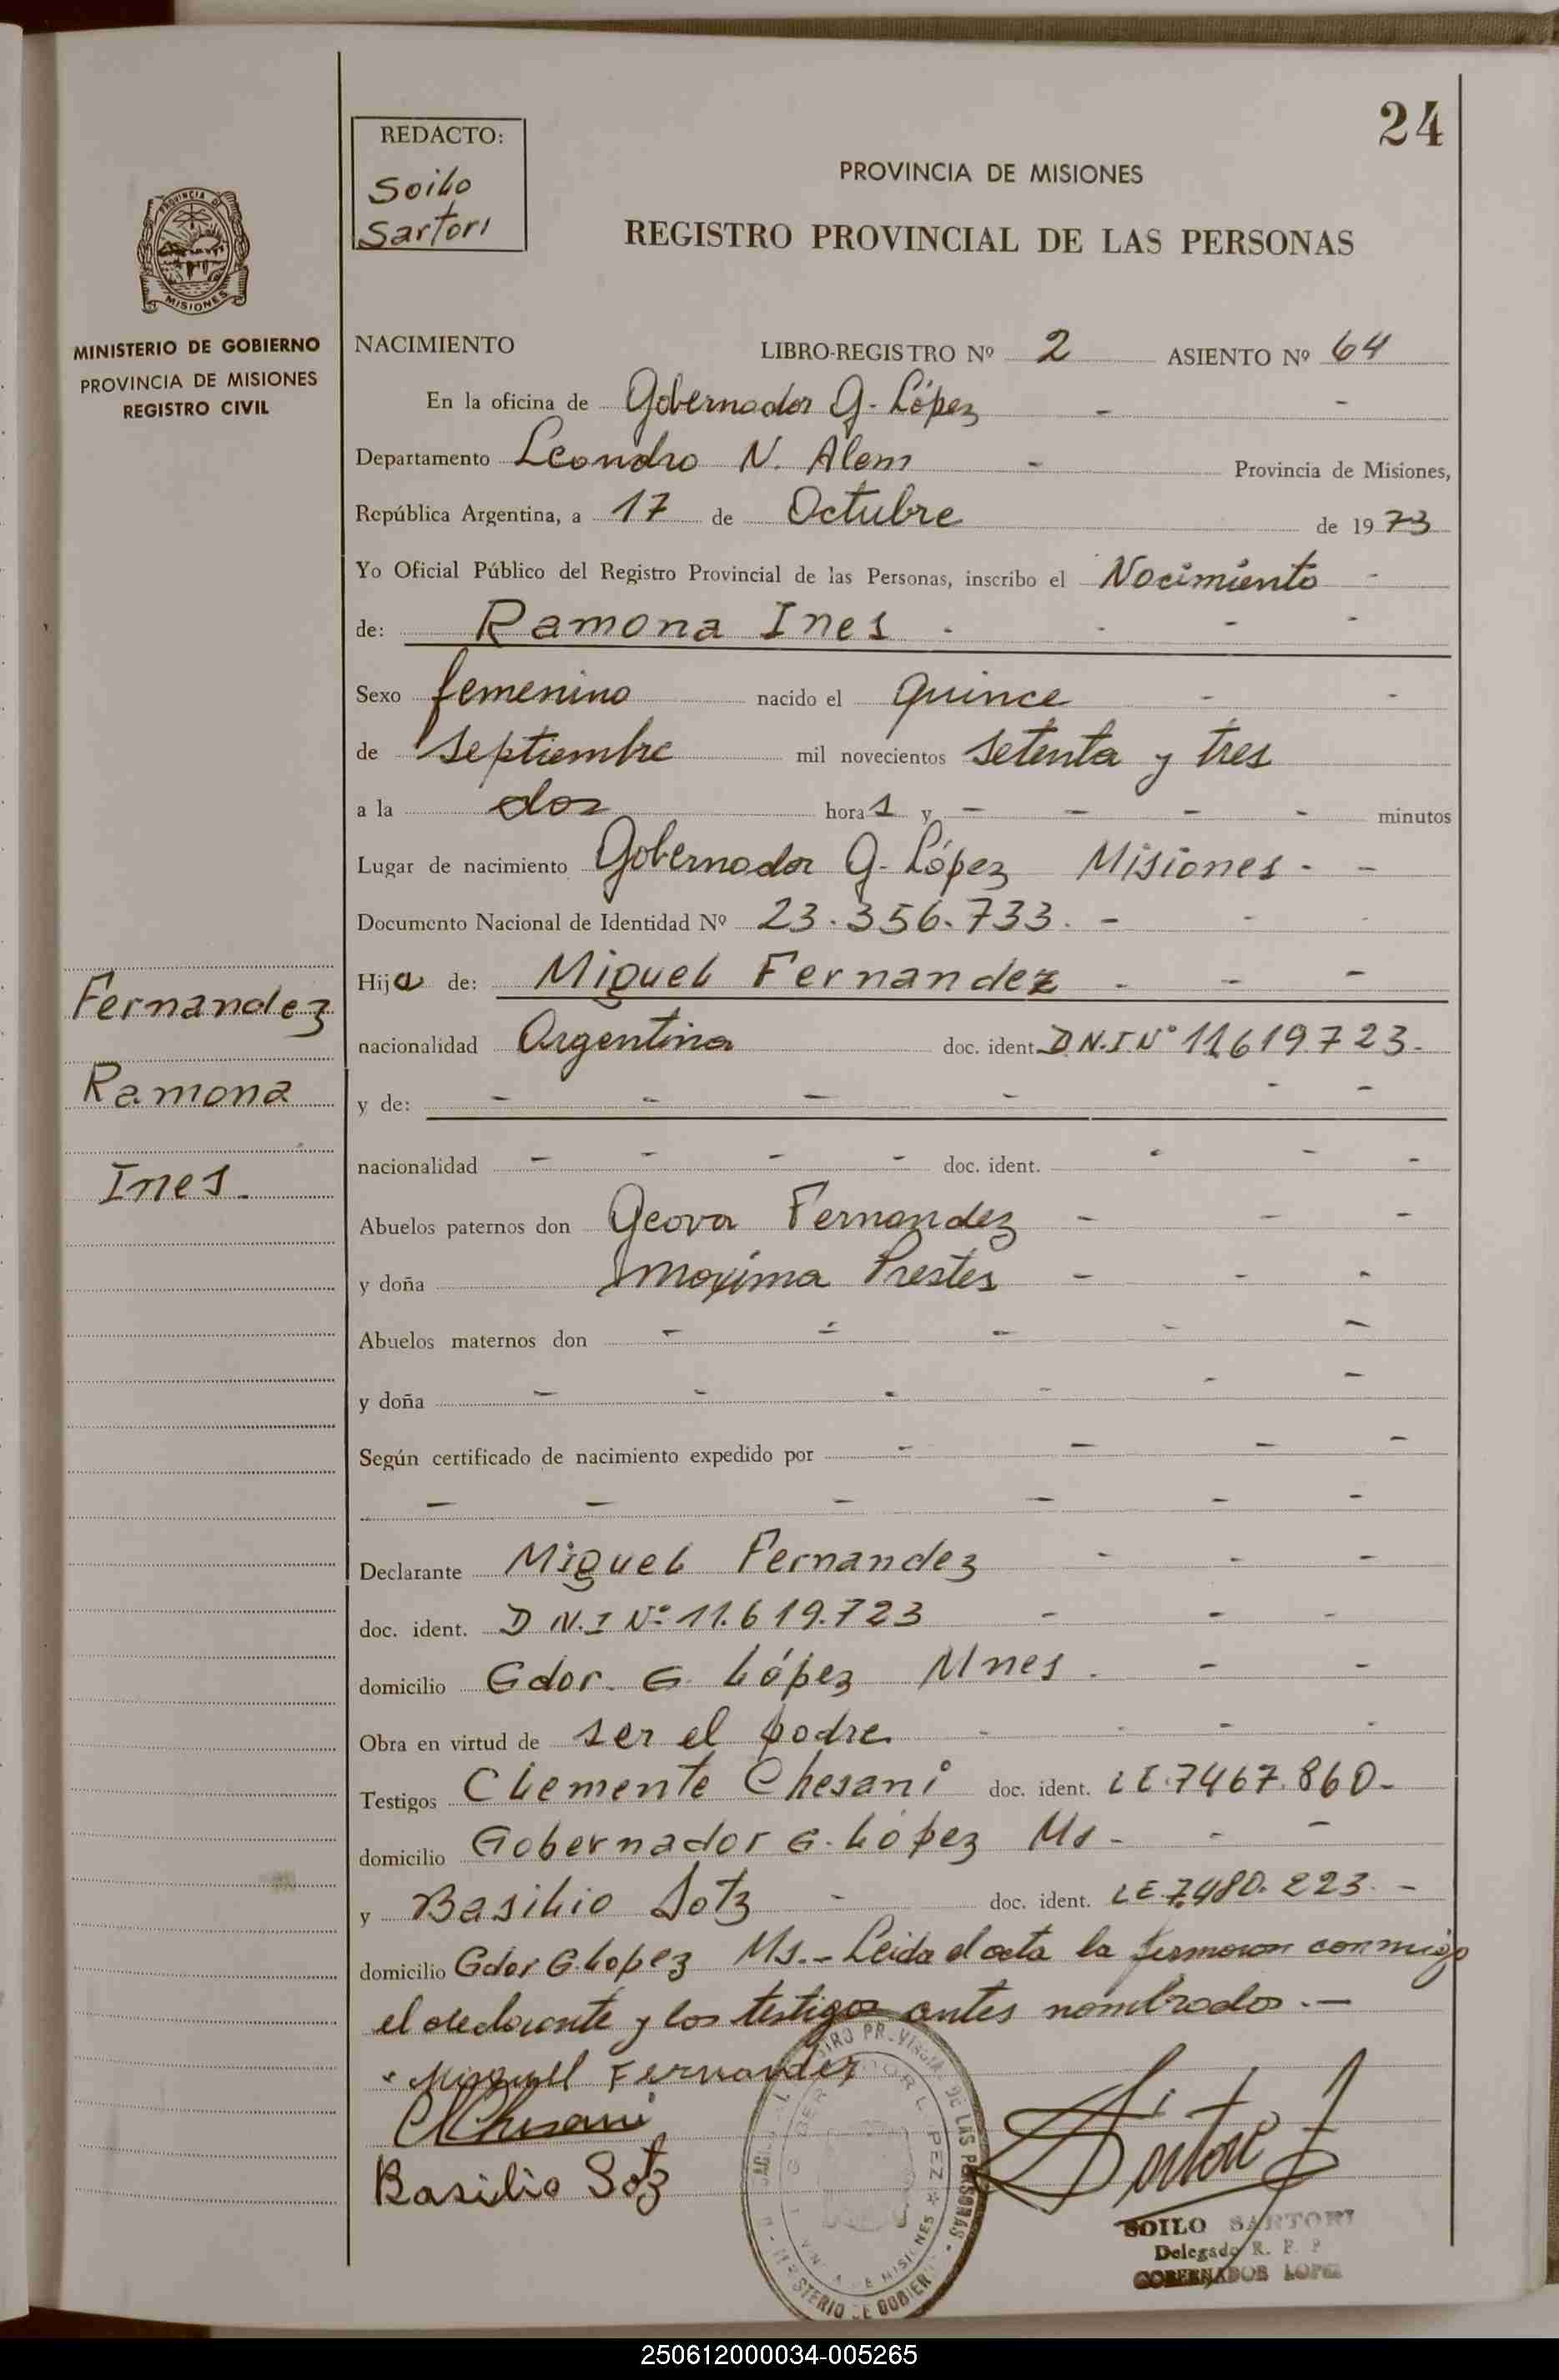 24
REDACTO:
Soilo
Sartori
PROVINCIA DE MISIONES
REGISTRO PROVINCIAL DE LAS PERSONAS
PROVINCIA DE
MISIONES
MINISTERIO DE GOBIERNO
PROVINCIA DE MISIONES
REGISTRO CIVIL
NACIMIENTO LIBRO-REGISTRO Nº 2 ASIENTO Nº 64
En la oficina de Gobernador G. López - -
Departamento Leandro N. Alem - Provincia de Misiones,
República Argentina, a 17 de Octubre de 1973
Yo Oficial Público del Registro Provincial de las Personas, inscribo el Nacimiento -
de: Ramona Ines - - - -
Sexo femenino nacido el quince - -
de Septiembre mil novecientos setenta y tres
a la dos horas y - - - - minutos
Lugar de nacimiento Gobernador G. López Misiones - -
Documento Nacional de Identidad Nº 23.356.733. - - -
Fernandez
Ramona
Ines.
Hija de: Miguel Fernandez - - -
nacionalidad Argentina doc. ident. D.N.I.Nº 11.619.723.
y de: - - - - - -
nacionalidad - - - - doc. ident. - - -
Abuelos paternos don Geova Fernandez - - -
y doña Maxima Prestes - - -
Abuelos maternos don - - - - -
y doña - - - - - -
Según certificado de nacimiento expedido por - - - -
- - - - - -
Declarante Miguel Fernandez - - -
doc. ident. D N.I Nº 11.619.723 - - -
domicilio Gdor. G. López Mnes. - -
Obra en virtud de ser el padre - - - -
Testigos Clemente Chesani doc. ident. LE.7467.860-
domicilio Gobernador G. López Ms - - -
y Basilio Sotz - doc. ident. LE 7.480.223. -
domicilio Gdor G. Lopez Ms.- Leida el acta la firmaron conmigo
el declarante y los testigos antes nombrados.-
Miguell Fernandez
ClChesani
Basilio Sotz
SOILO SARTORI
Delegado R. P. P
GOBERNADOR LOPEZ
250612000034-005265